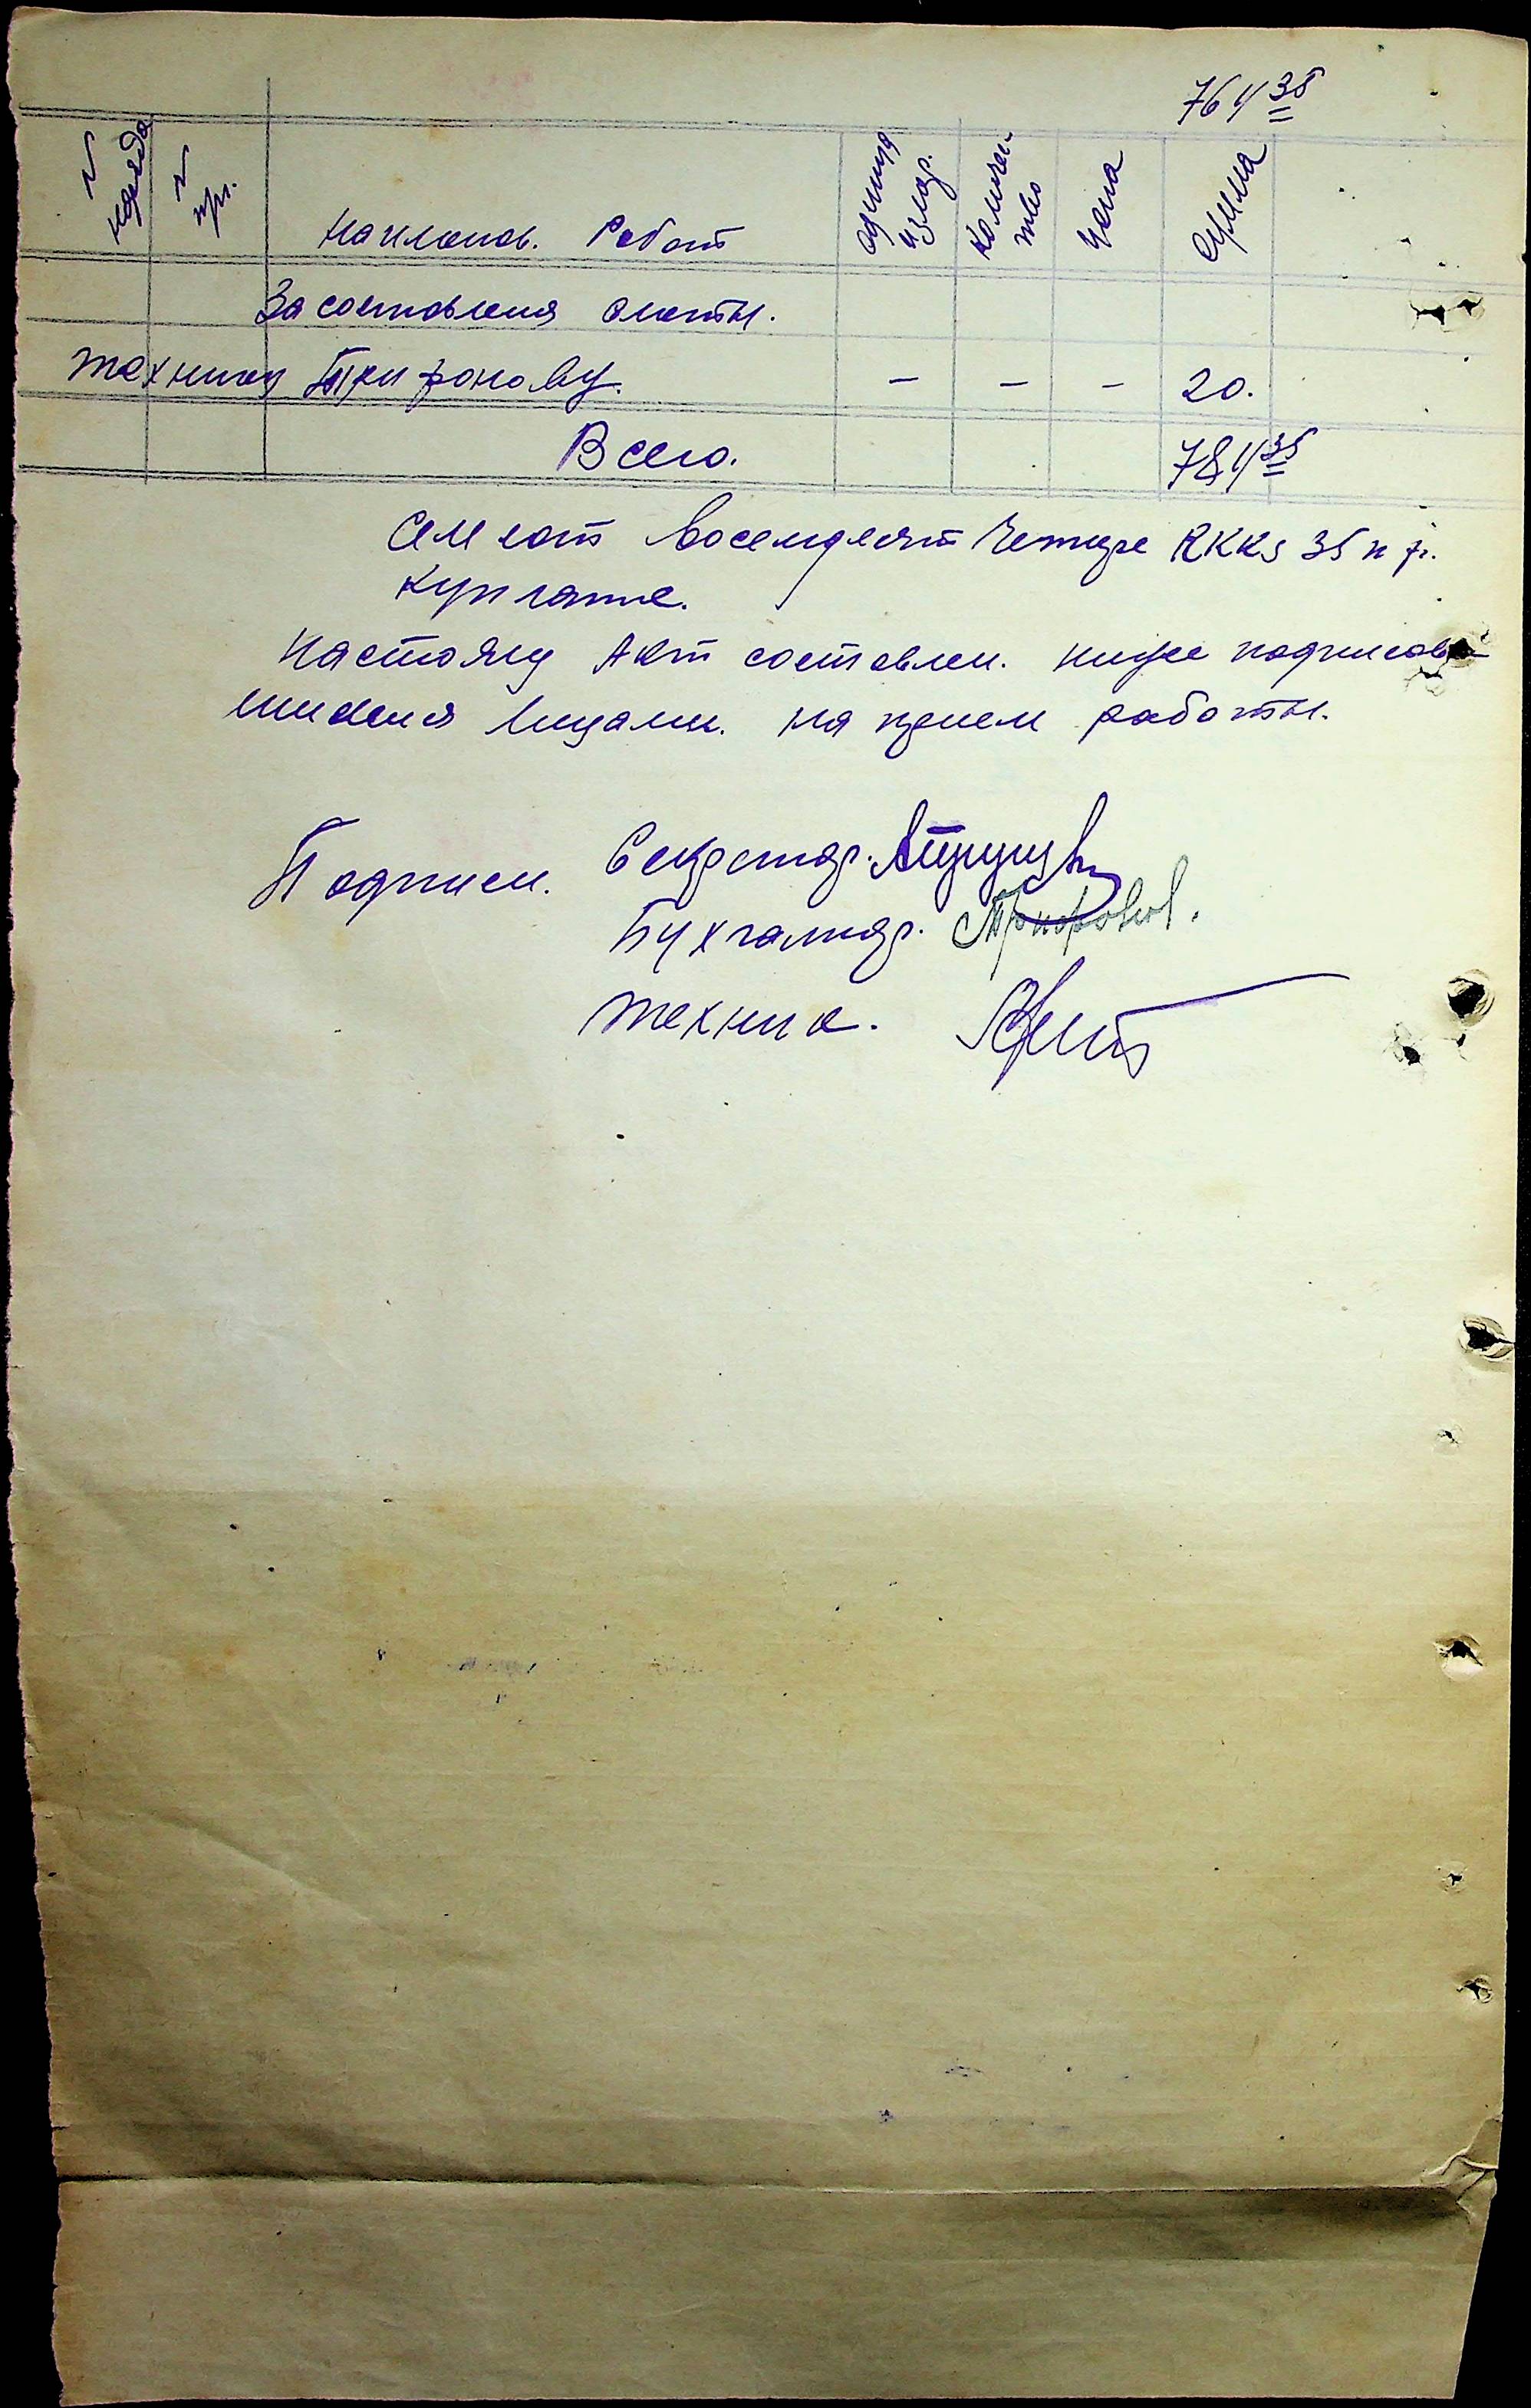 764 35
№ наряда № пр. Наименов. Работ единица измер. количес- тво цена сумма
За составления сметы.
технику Трифонову. — — — 20.
Всего. 784 35
Семсот восемдесят Четыре RKKS 35 пф.
Настоящ Акт составлен. ниже подписав-
шимися лицами. на прием работы.
Подписи. Секретар.
Бухгалтер. Трифонов.
техник.